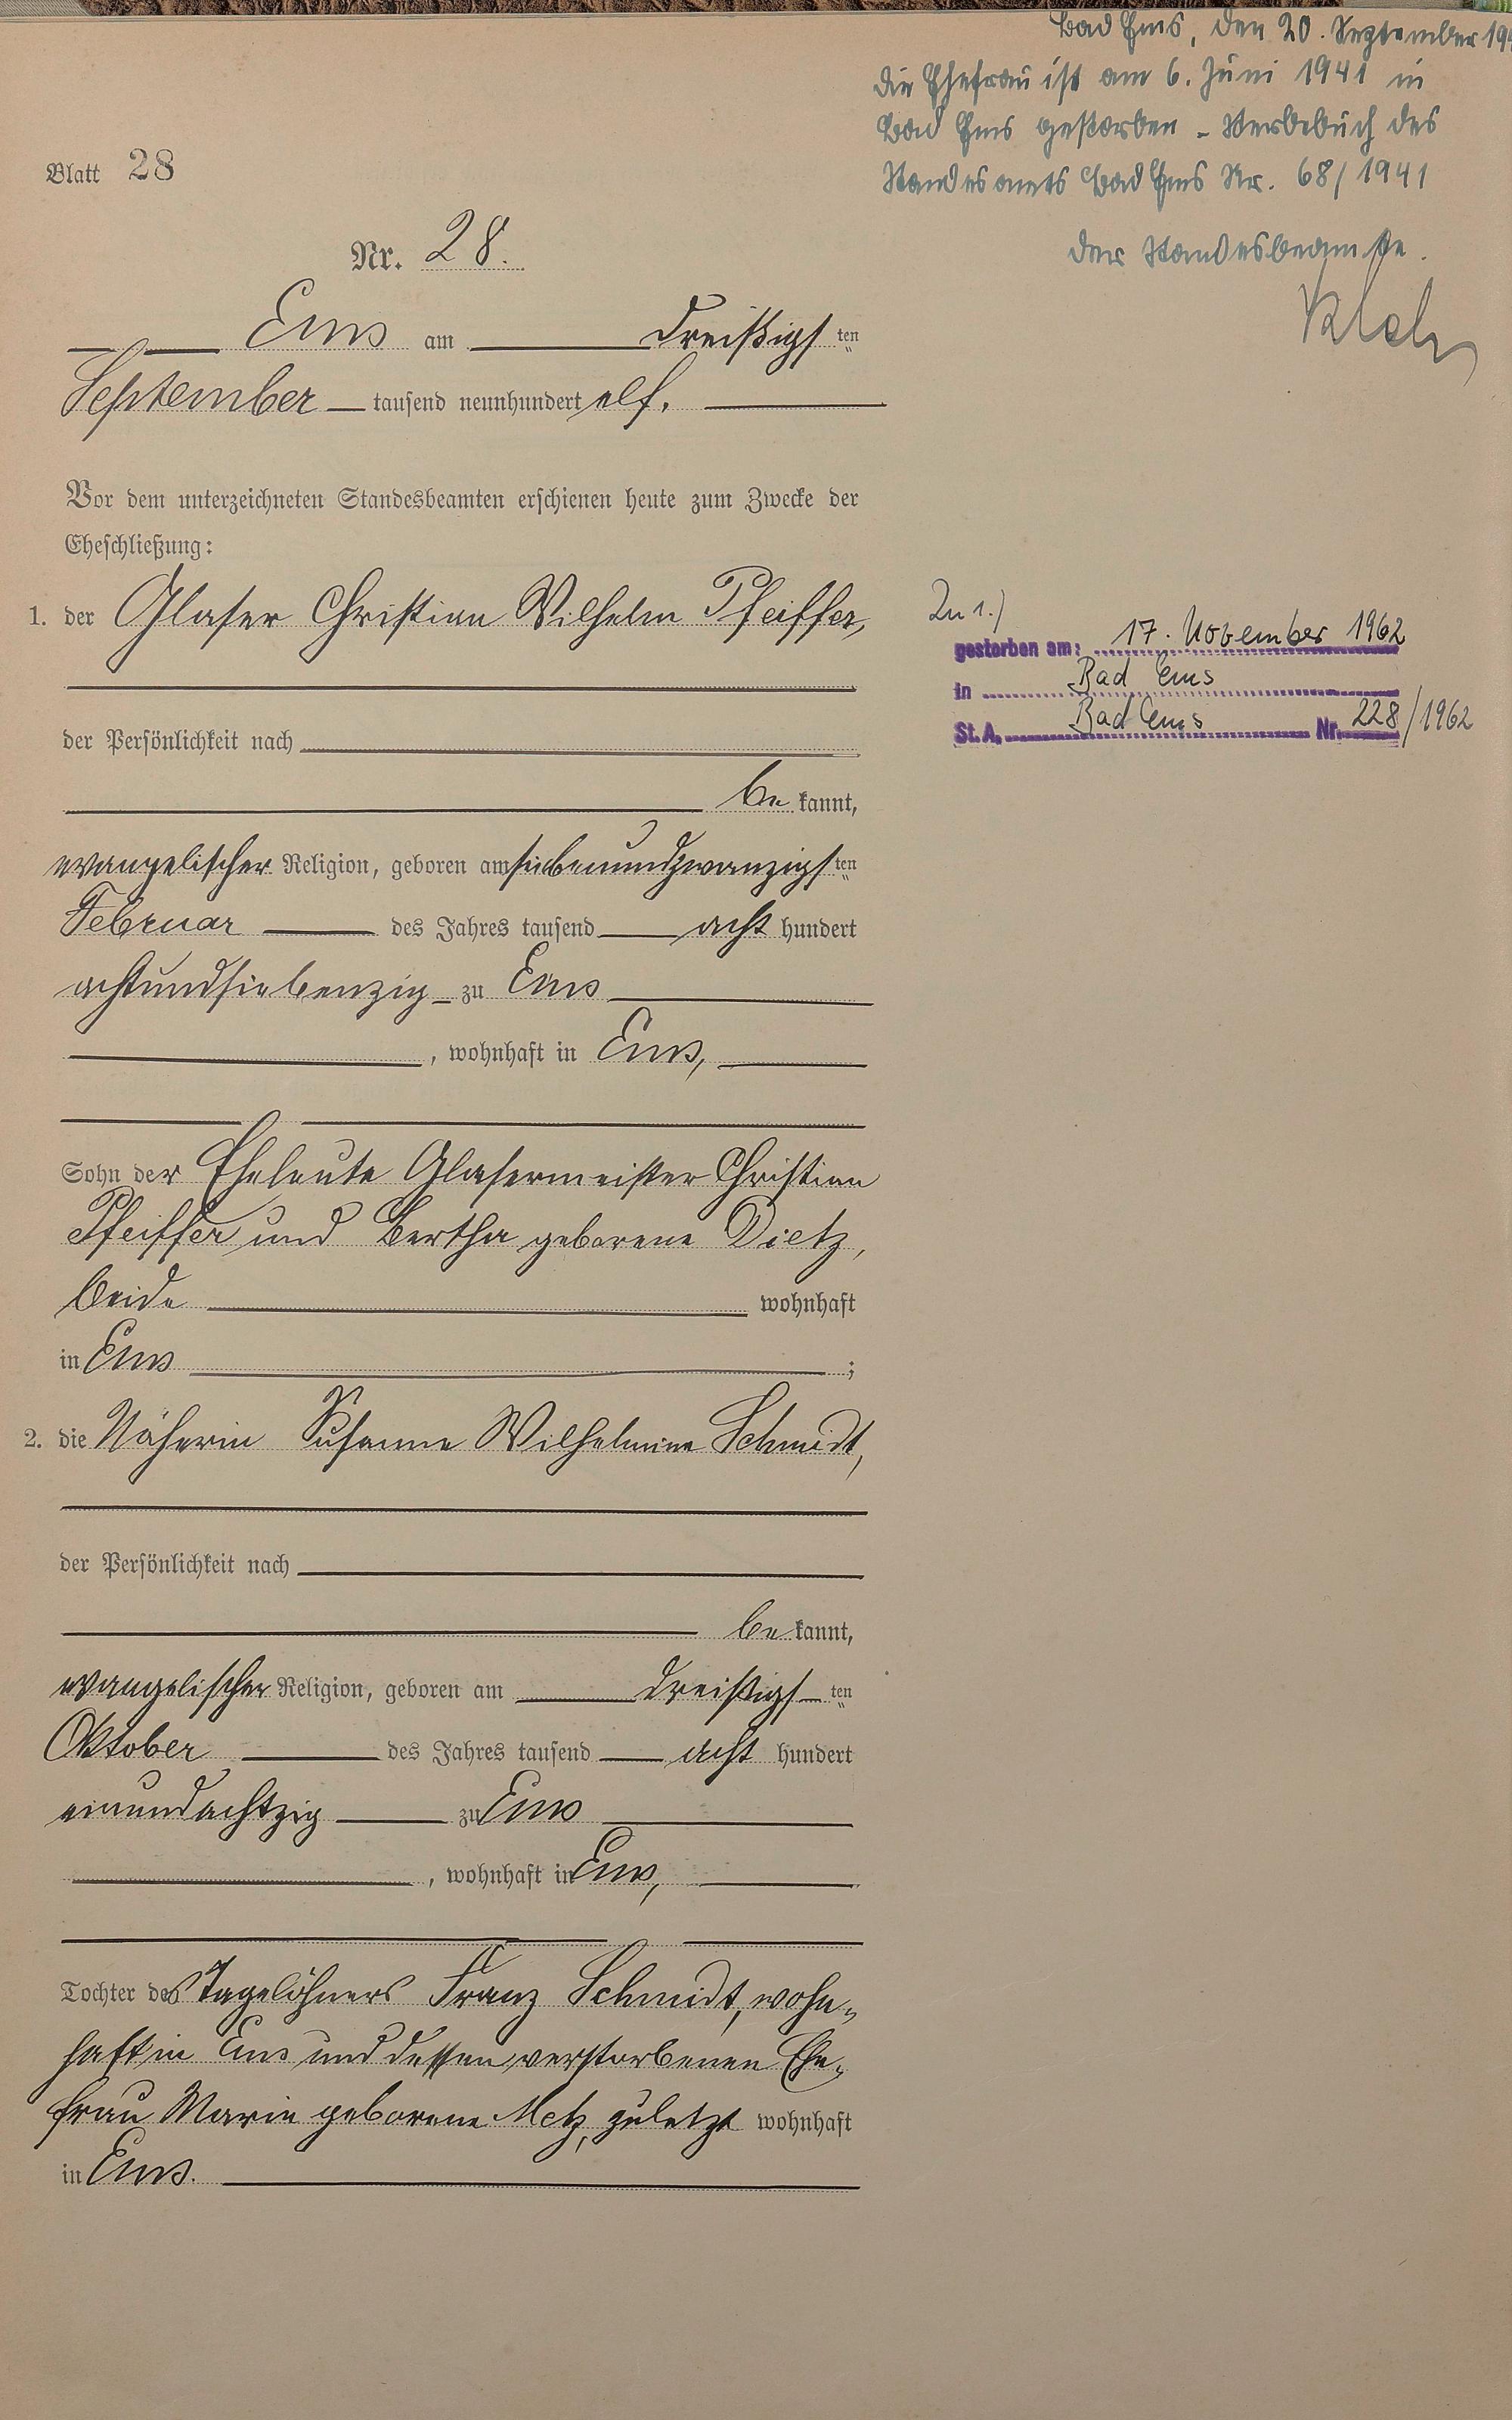 Bad Ems, den 20. September 19
die Ehefrau ist am 6. Juni 1941 in
Bad Ems gestorben - Sterbebuch des
Standesamts Bad Ems Nr. 68/1941
Der Standesbeamte.
Blatt 28
Nr. 28.
Ems am dreißigsten
September tausend neunhundert elf.
Vor dem unterzeichneten Standesbeamten erschienen heute zum Zwecke der
Eheschließung:
1. der Glaser Christian Wilhelm Pfeiffer,
der Persönlichkeit nach
bekannt,
evangelischer Religion, geboren am siebenundzwanzigsten
Februar des Jahres tausend acht hundert
achtundsiebenzig zu Ems
, wohnhaft in Ems,
Sohn der Eheleute Glasermeister Christian
Pfeiffer und Bertha geborene Dietz,
beide wohnhaft
in Ems ;
Zu 1.)
gestorben am: 17. November 1962
in Bad Ems
St.A. Bad Ems Nr. 228/1962
2. die Näherin Susanne Wilhelmine Schmidt,
der Persönlichkeit nach
bekannt,
evangelischer Religion, geboren am dreißigsten
Oktober des Jahres tausend acht hundert
einundachtzig zu Ems
, wohnhaft in Ems,
Tochter des Tagelöhners Franz Schmidt, wohn-
haft in Ems und dessen verstorbenen Ehe-
frau Marie geborene Metz, zuletzt wohnhaft
in Ems.